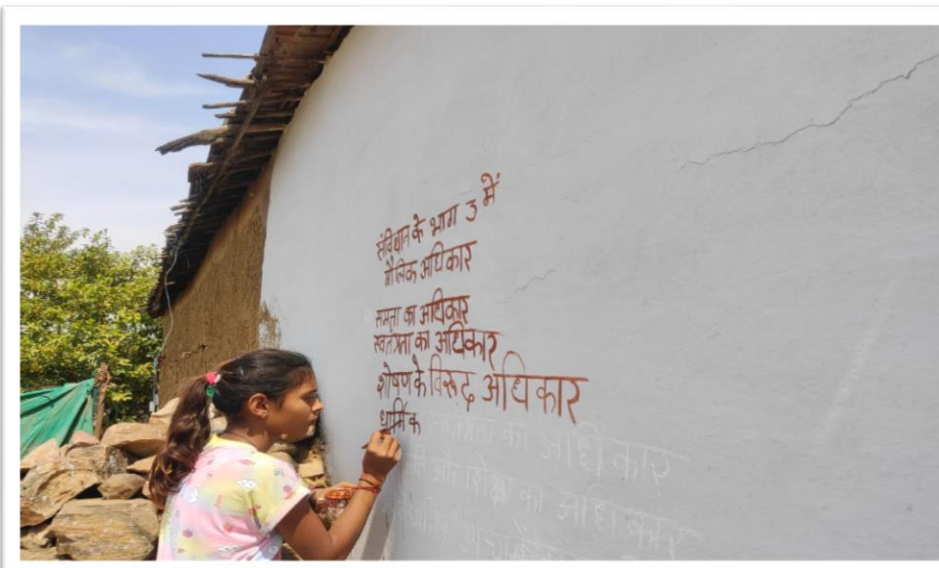 संविधान के भाग 3 में
मौलिक अधिकार
समता का अधिकार
स्वतंत्रता का अधिकार
शोषण के विरूद्ध अधिकार
धार्मिक स्वतंत्रता का अधिकार
और शिक्षा का अधिकार